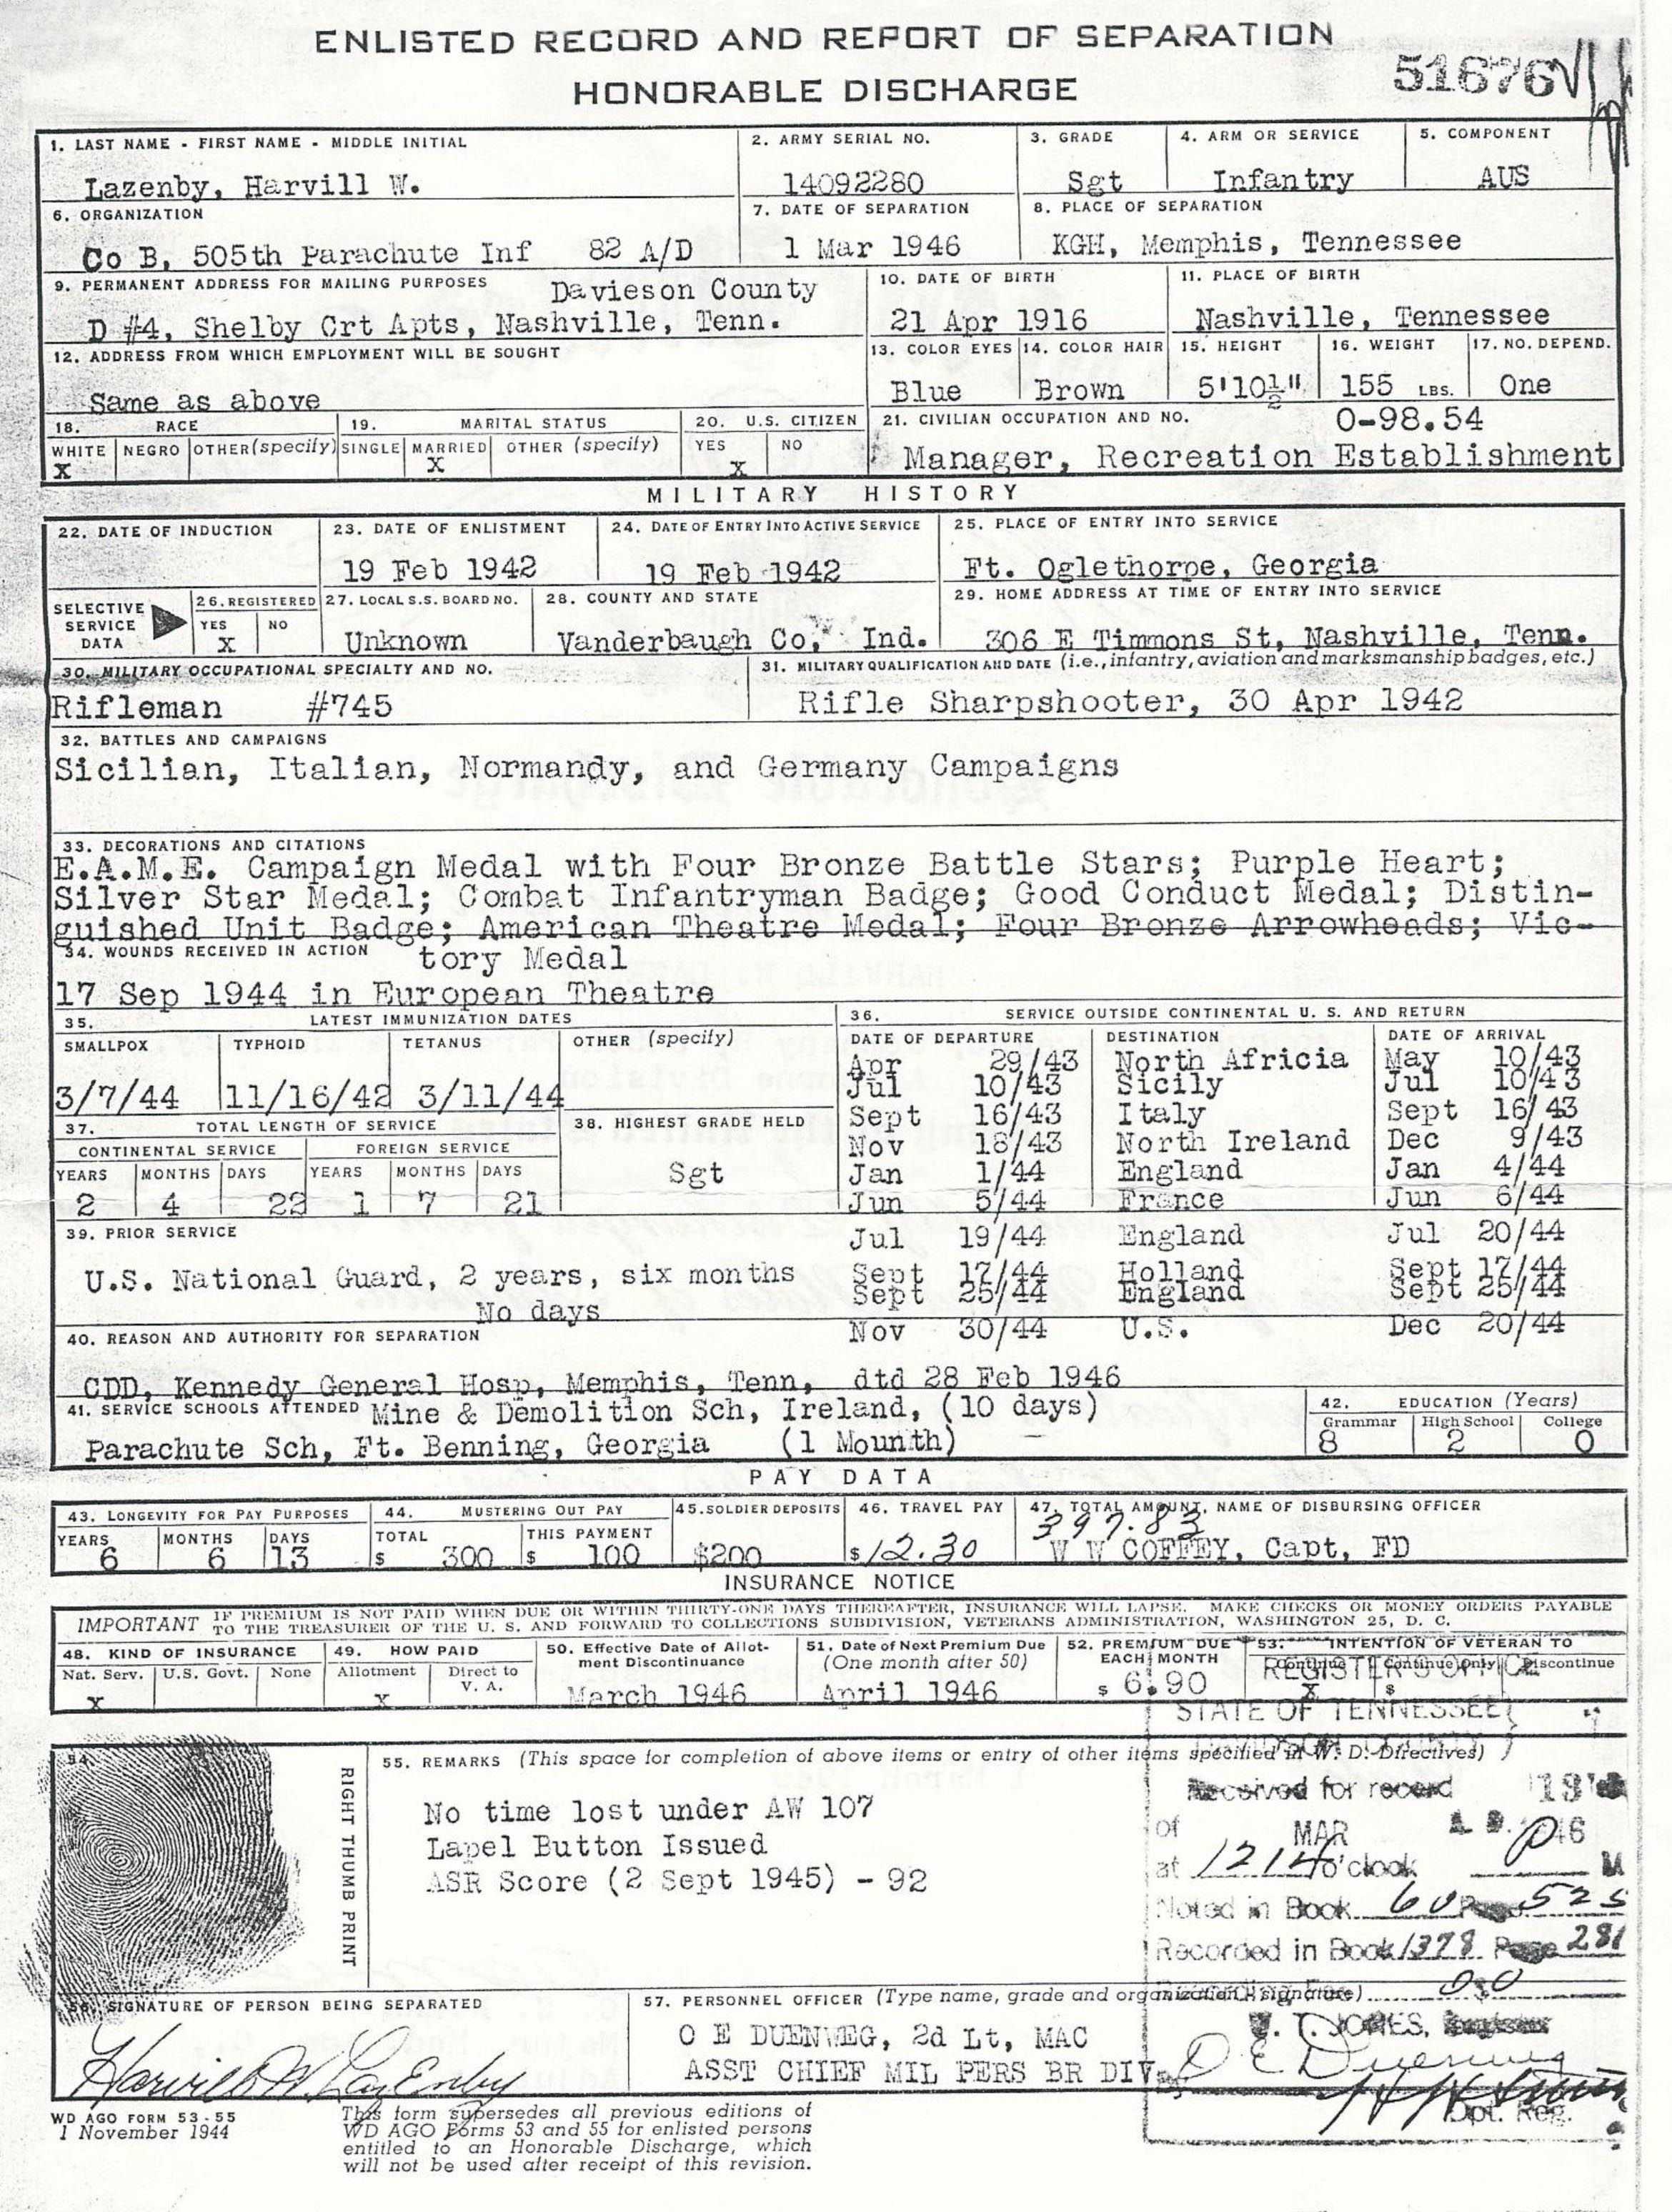 ENLISTED RECORD AND REPORT OF SEPARATION
HONORABLE DISCHARGE
51676
1. LAST NAME - FIRST NAME - MIDDLE INITIAL
Lazenby, Harvill W.
2. ARMY SERIAL NO.
14092280
3. GRADE
Sgt
4. ARM OR SERVICE
Infantry
5. COMPONENT
AUS
6. ORGANIZATION
Co B, 505th Parachute Inf 82 A/D
7. DATE OF SEPARATION
1 Mar 1946
8. PLACE OF SEPARATION
KGH, Memphis, Tennessee
9. PERMANENT ADDRESS FOR MAILING PURPOSES
Davieson County
D #4, Shelby Crt Apts, Nashville, Tenn.
10. DATE OF BIRTH
21 Apr 1916
11. PLACE OF BIRTH
Nashville, Tennessee
12. ADDRESS FROM WHICH EMPLOYMENT WILL BE SOUGHT
Same as above
13. COLOR EYES
Blue
14. COLOR HAIR
Brown
15. HEIGHT
5'10½"
16. WEIGHT
155 LBS.
17. NO. DEPEND.
One
18. RACE
WHITE NEGRO OTHER (specify)
X
19. MARITAL STATUS
SINGLE MARRIED OTHER (specify)
X
20. U.S. CITIZEN
YES NO
X
21. CIVILIAN OCCUPATION AND NO.
0-98.54
Manager, Recreation Establishment
MILITARY HISTORY
22. DATE OF INDUCTION
23. DATE OF ENLISTMENT
19 Feb 1942
24. DATE OF ENTRY INTO ACTIVE SERVICE
19 Feb 1942
25. PLACE OF ENTRY INTO SERVICE
Ft. Oglethorpe, Georgia
SELECTIVE SERVICE DATA
26. REGISTERED
YES NO
X
27. LOCAL S.S. BOARD NO.
Unknown
28. COUNTY AND STATE
Vanderbaugh Co, Ind.
29. HOME ADDRESS AT TIME OF ENTRY INTO SERVICE
306 E Timmons St, Nashville, Tenn.
30. MILITARY OCCUPATIONAL SPECIALTY AND NO.
Rifleman #745
31. MILITARY QUALIFICATION AND DATE (i.e., infantry, aviation and marksmanship badges, etc.)
Rifle Sharpshooter, 30 Apr 1942
32. BATTLES AND CAMPAIGNS
Sicilian, Italian, Normandy, and Germany Campaigns
33. DECORATIONS AND CITATIONS
E.A.M.E. Campaign Medal with Four Bronze Battle Stars; Purple Heart;
Silver Star Medal; Combat Infantryman Badge; Good Conduct Medal; Distin-
guished Unit Badge; American Theatre Medal; Four Bronze Arrowheads; Vic-
tory Medal
34. WOUNDS RECEIVED IN ACTION
17 Sep 1944 in European Theatre
35. LATEST IMMUNIZATION DATES
SMALLPOX TYPHOID TETANUS OTHER (specify)
3/7/44 11/16/42 3/11/44
36. SERVICE OUTSIDE CONTINENTAL U. S. AND RETURN
DATE OF DEPARTURE DESTINATION DATE OF ARRIVAL
Apr 29/43 North Africia May 10/43
Jul 10/43 Sicily Jul 10/43
Sept 16/43 Italy Sept 16/43
Nov 18/43 North Ireland Dec 9/43
Jan 1/44 England Jan 4/44
Jun 5/44 France Jun 6/44
Jul 19/44 England Jul 20/44
Sept 17/44 Holland Sept 17/44
Sept 25/44 England Sept 25/44
Nov 30/44 U.S. Dec 20/44
37. TOTAL LENGTH OF SERVICE
CONTINENTAL SERVICE FOREIGN SERVICE
YEARS MONTHS DAYS YEARS MONTHS DAYS
2 4 22 1 7 21
38. HIGHEST GRADE HELD
Sgt
39. PRIOR SERVICE
U.S. National Guard, 2 years, six months
No days
40. REASON AND AUTHORITY FOR SEPARATION
CDD, Kennedy General Hosp, Memphis, Tenn, dtd 28 Feb 1946
41. SERVICE SCHOOLS ATTENDED
Mine & Demolition Sch, Ireland, (10 days)
Parachute Sch, Ft. Benning, Georgia (1 Mounth)
42. EDUCATION (Years)
Grammar High School College
8 2 0
PAY DATA
43. LONGEVITY FOR PAY PURPOSES
YEARS MONTHS DAYS
6 6 13
44. MUSTERING OUT PAY
TOTAL THIS PAYMENT
$ 300 $ 100
45. SOLDIER DEPOSITS
$200
46. TRAVEL PAY
$12.30
47. TOTAL AMOUNT, NAME OF DISBURSING OFFICER
397.83
W W COFFEY, Capt, FD
INSURANCE NOTICE
IMPORTANT IF PREMIUM IS NOT PAID WHEN DUE OR WITHIN THIRTY-ONE DAYS THEREAFTER, INSURANCE WILL LAPSE. MAKE CHECKS OR MONEY ORDERS PAYABLE
TO THE TREASURER OF THE U. S. AND FORWARD TO COLLECTIONS SUBDIVISION, VETERANS ADMINISTRATION, WASHINGTON 25, D. C.
48. KIND OF INSURANCE
Nat. Serv. U.S. Govt. None
X
49. HOW PAID
Allotment Direct to V. A.
X
50. Effective Date of Allot-
ment Discontinuance
March 1946
51. Date of Next Premium Due
(One month after 50)
April 1946
52. PREMIUM DUE
EACH MONTH
$ 6.90
53. INTENTION OF VETERAN TO
Continue Continue Only Discontinue
X $
REGISTER'S OFFICE
STATE OF TENNESSEE
54.
RIGHT THUMB PRINT
55. REMARKS (This space for completion of above items or entry of other items specified in W. D. Directives)
No time lost under AW 107
Lapel Button Issued
ASR Score (2 Sept 1945) - 92
Received for record
of MAR
at 12 14 o'clock P M
Noted in Book 60 Page 525
Recorded in Book 1378 Page 281
56. SIGNATURE OF PERSON BEING SEPARATED
Harvill W. LazEnby
57. PERSONNEL OFFICER (Type name, grade and organization - signature)
O E DUENWEG, 2d Lt, MAC
ASST CHIEF MIL PERS BR DIV
O E Duenweg
JONES,
Dpt. Reg.
WD AGO FORM 53-55
1 November 1944
This form supersedes all previous editions of
WD AGO Forms 53 and 55 for enlisted persons
entitled to an Honorable Discharge, which
will not be used after receipt of this revision.